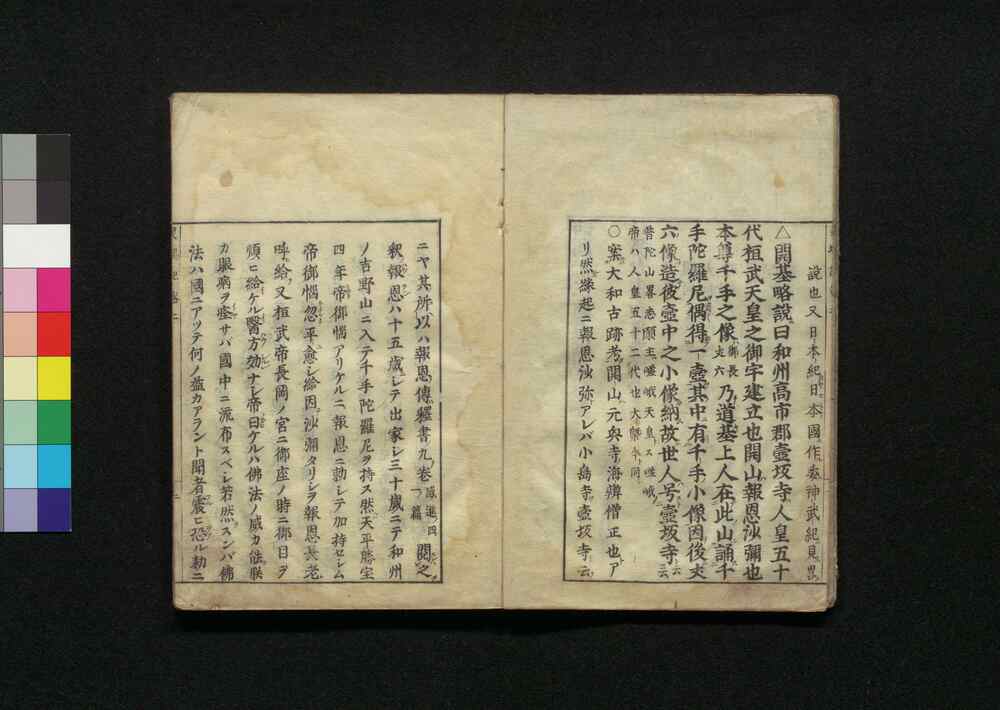 說也又日本紀曰本國作安神武紀見
△開基略說曰和州高市郡壺坂寺人皇五十
代桓武天皇之御宇建立也開山報恩沙彌也
本尊千手之像 御長丈六 乃道基上人在此山誦千
手陀羅尼偶得一壺其中有千手小像因後丈
六像造彼壺中之小像納故世人号壺坂寺云云
普陀山畧悉願主嵯峨天皇
帝ハ人皇五十二代也
○案大和古跡考開山元興寺海辨僧正也ア
リ然緣起ニ報恩沙弥アレバ小島寺壺坂寺云
ニヤ其所以ハ報恩傳釋書九卷 感進四一篇 閱之
釈報恩ハ十五歳レテ出家レ三十歲ニテ和州
ノ吉野山ニ入テ千手陀羅尼ヲ持ス然天平勝宝
四年帝御惱アリケルニ報恩ニ勅レテ加持セレム
帝御惱忽平愈レ給因沙彌タリレヲ報恩長老
呼給ノ又桓武帝長岡ノ宮ニ御座ノ時ニ御目ヲ
煩ヒ給ケル醫方効ナレ帝曰ケルハ佛法ノ威力能朕
カ眼病ヲ痊サバ國中ニ流布スベレ若然スンバ佛
法ハ國ニアツテ何ノ益カアラント聞者震ヒ恐ル勅ニ